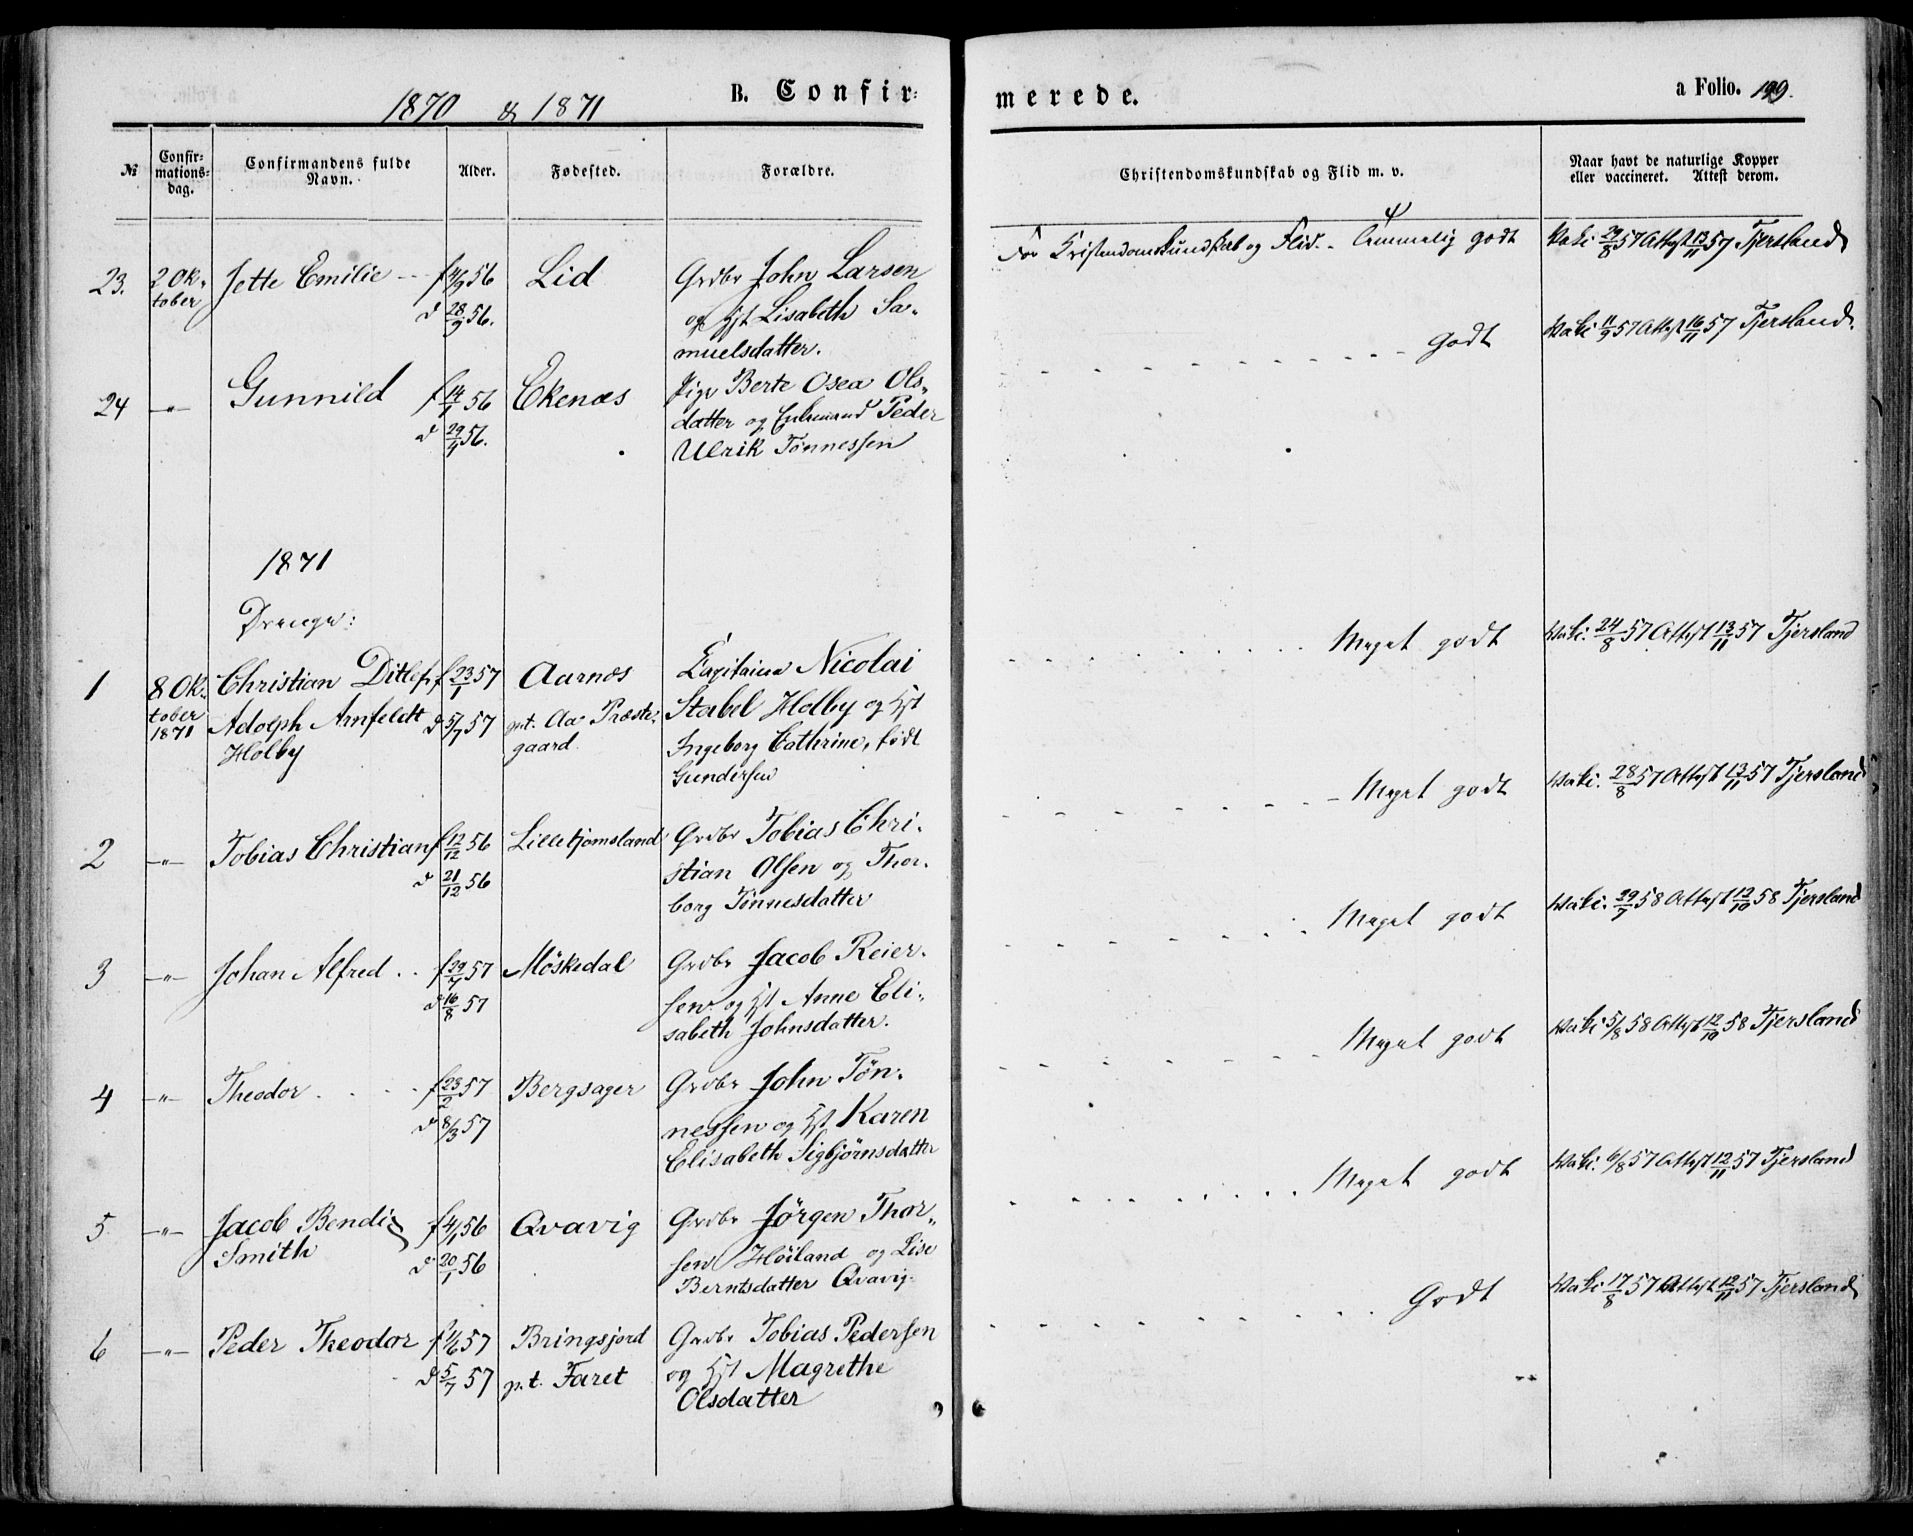 1870 & 1871
B. Confir-
merede.
a Folio. 199.
No
Confir-
mations-
dag.
Confirmandens fulde
Navn.
Alder.
Fødested.
Forældre.
Christendomskundskab og Flid m. v.
Naar havt de naturlige Kopper
eller vaccineret. Attest derom.
23. 2 Ok- Jette Emilie f 4/9 56 Lid Grdbr John Larsen
tober d 28/9 56. og Hst Lisabeth Sa-
muelsdatter.
For Kristendomskundskab og Flid. - Temmelig godt Vakc. 29/8 57 Attest 13/11 57 Tjersland
24 -"- Gunnild f 14/1 56 Ekenæs Pige Berte Osea Ols-
d 29/1 56. datter og Ægtemand Peder
Ulrik Tønnessen
Godt Vakc. 11/9 57 Attest 16/11 57 Tjersland.
1871
Drenge:
1 8 Ok- Christian Ditlef f 23/1 57 Aarnæs Capitaine Nicolai
tober Adolph Arnfeldt d 5/7 57 p.t. Aa Præste- Stabel Holby og Hst
1871 Holby gaard. Ingeborg Cathrine, født
Gundersen
Meget godt Vakc. 24/8 57 Attest 13/11 57 Tjersland
2 -"- Tobias Christian f 12/12 56 Lilletjomsland Grdbr Tobias Chri-
d 21/12 56 stian Olsen og Thor-
borg Tønnesdatter
Meget godt Vakc. 28/8 57 Attest 13/11 57 Tjersland
3 -"- Johan Alfred f 29/7 57 Møskedal Grdbr Jacob Reier-
d 16/8 57 sen og Hst Anne Eli-
sabeth Johnsdatter.
Meget godt Vakc. 29/7 58 Attest 12/10 58 Tjersland
4 -"- Theodor f 23/2 57 Bergsager Grdbr John Tøn-
d 8/3 57 nessen og Hst Karen
Elisabeth Sigbjørnsdatter
Meget godt Vakc. 5/8 58 Attest 12/10 58 Tjersland
5 -"- Jacob Bendix f 4/1 56 Qvavig Grdbr Jørgen Thor-
Smith d 20/1 56 sen Høiland og Lise
Berntsdatter Qvavig.
Meget godt Vakc. 6/8 57 Attest 12/11 57 Tjersland
6 -"- Peder Theodor f 4/6 57 Bringsjord Grdbr Tobias Pedersen
d 5/7 57 p.t. Faret og Hst Magrethe
Olsdatter
Godt Vakc. 17/8 57 Attest 12/11 57 Tjersland